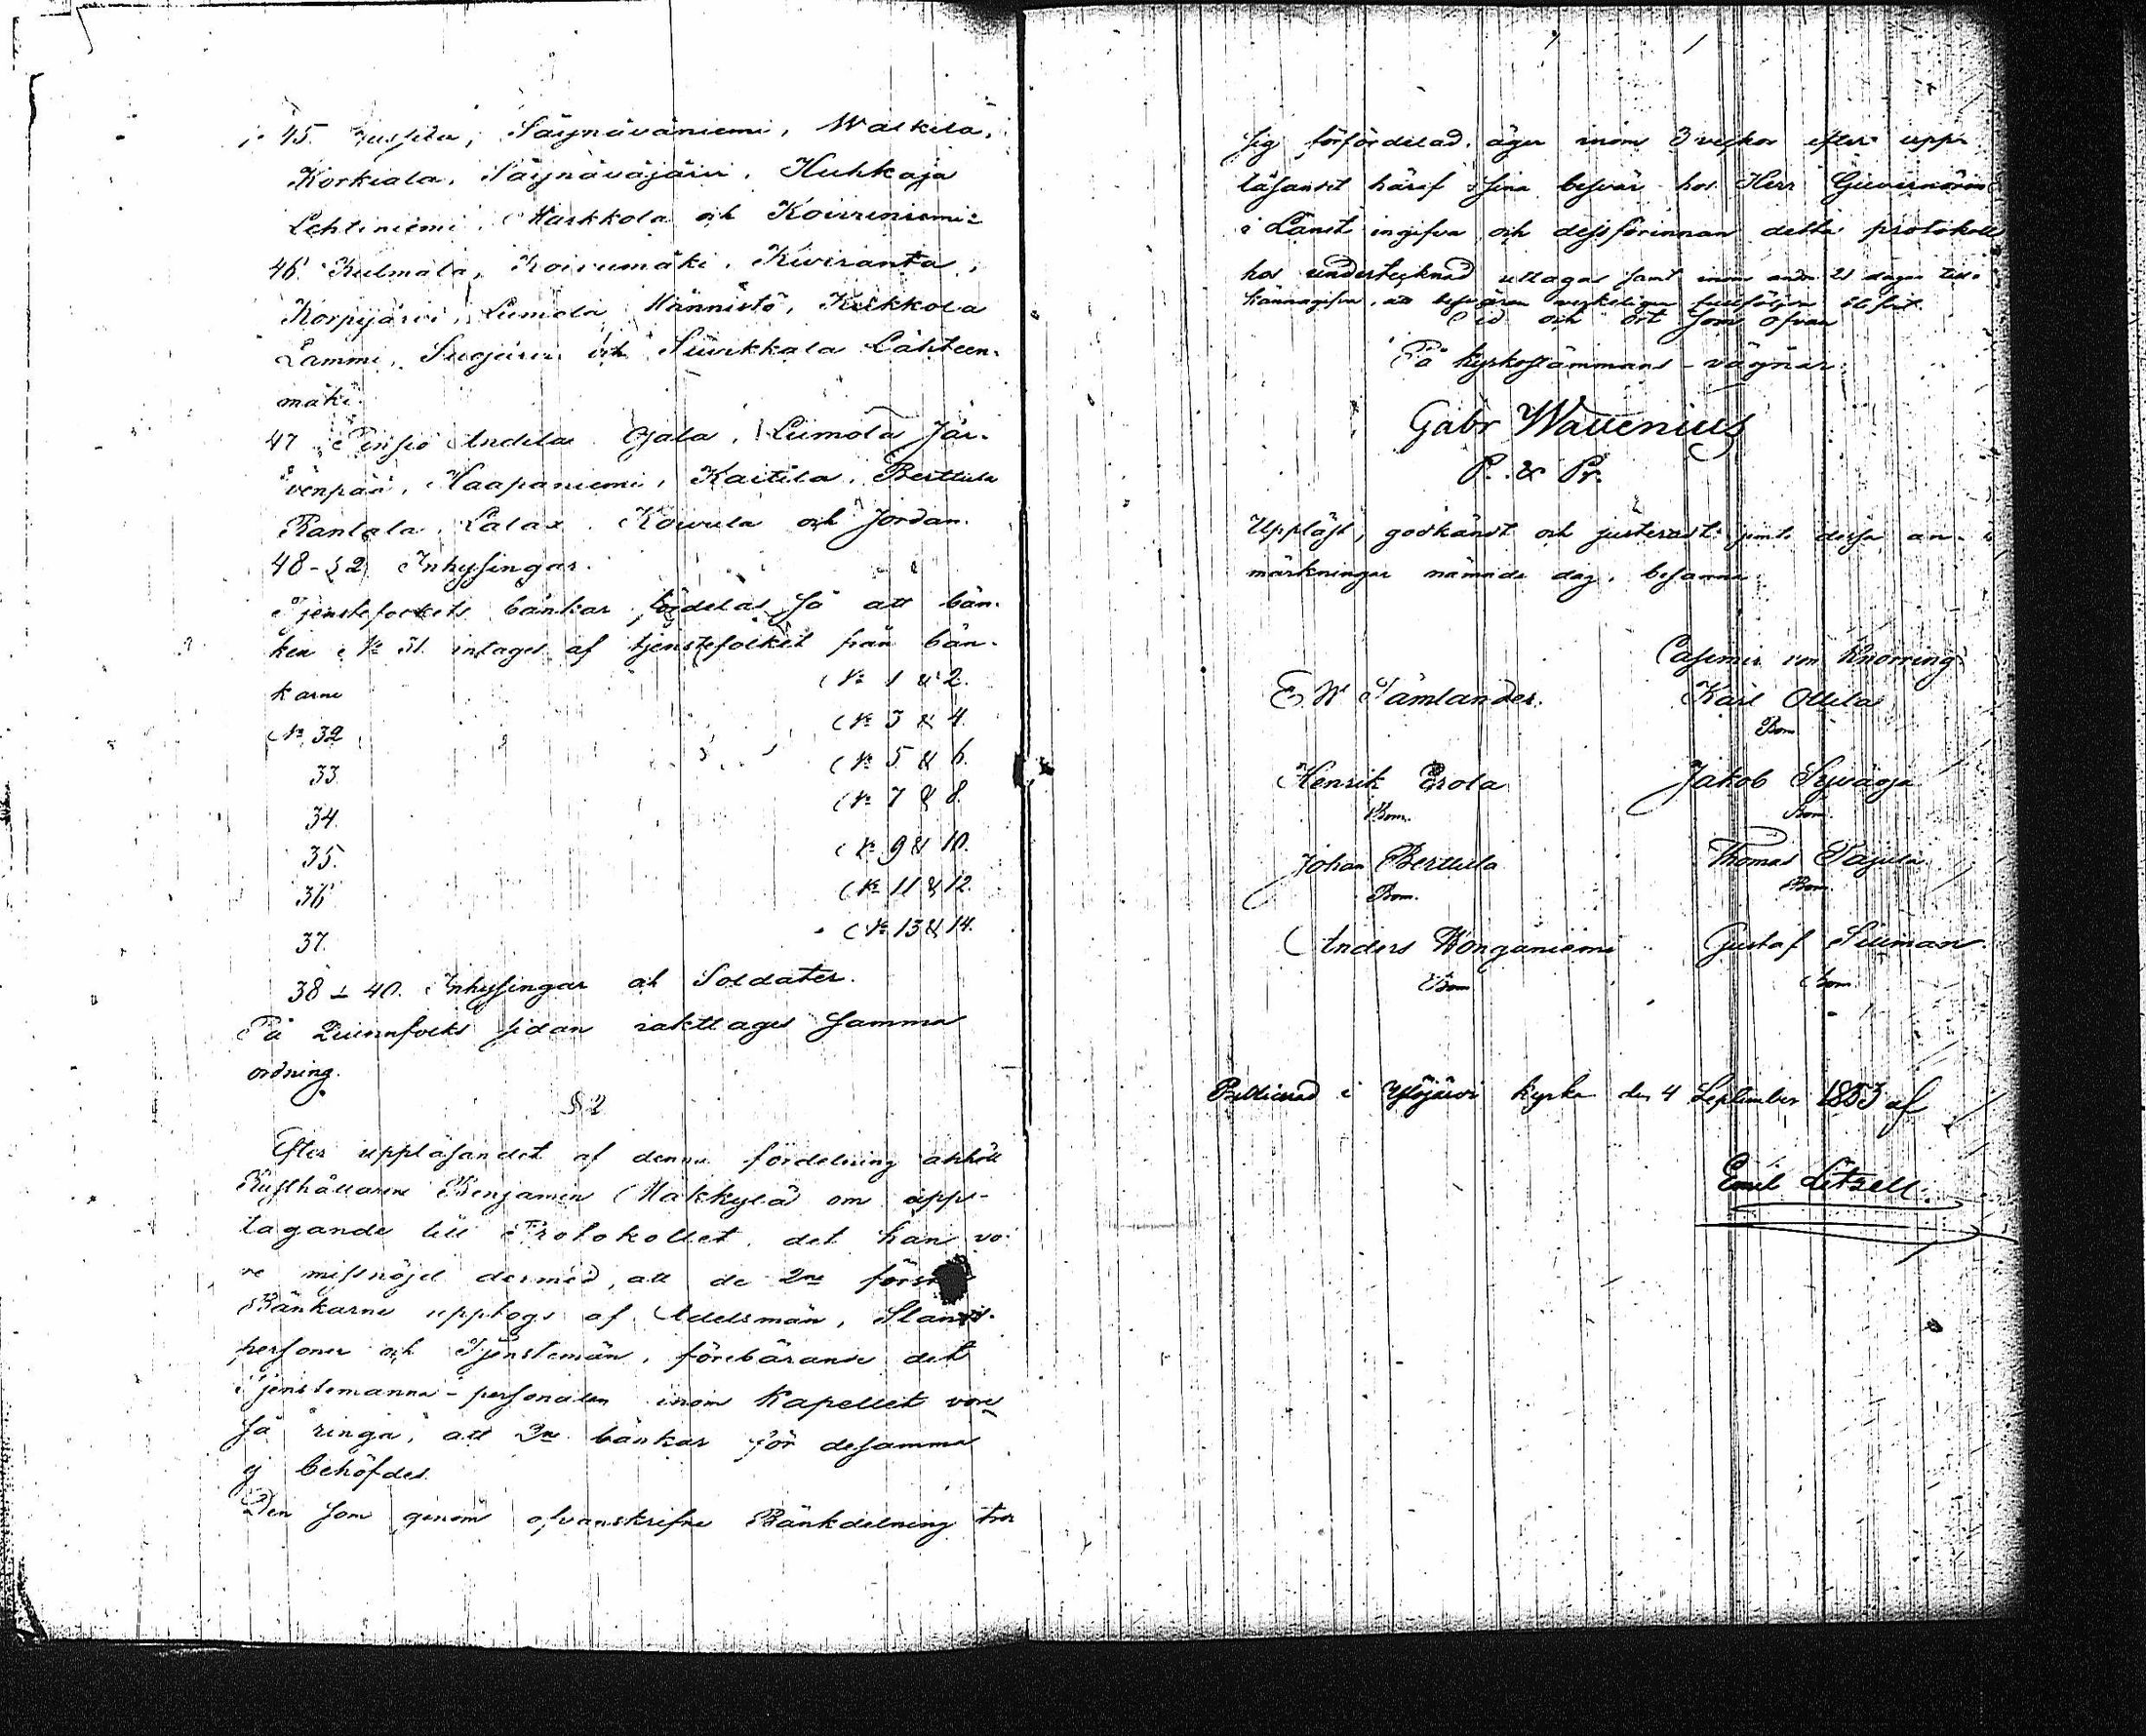 45. Jussila, Säynäväniemi, Walkila,
Korkiala, Säynäväjärvi, Huhkaja
Lehtiniemi, Markkola och Koivuniemi
46. Kulmala, Koivumäki, Kiviranta,
Korpijärvi, Liimola, Männistö, Keikkola
Lammi, Suojärvi och Siurikkala Lähteen-
mäki.
47 Pensiö Andila Ojala, Liimola Jär-
venpää, Haapaniemi, Kaitila, Berttula
Rantala, Lalax, Kowula och Jordan.
48-52 Inhysingar.
Tjenstefolkets bänkar fördelas så att bän-
ken No 31 intages af tjenstefolket från bän-
karne No 1 & 2.
No 32 No 3 & 4.
33. No 5 & 6.
34. No 7 & 8.
35. No 9 & 10.
36 No 11 & 12.
37. No 13 & 14.
38 - 40. Inhysingar och Soldater.
På Qvinnfolks sidan iakttages samma
ordning.
§ 2
Efter uppläsandet af denna fördelning anhöll
Rusthållaren Benjamin Makkylä om upp-
tagande till Protokollet, det han vo-
re missnöjd dermed, att de 2ne första
Bänkarne upptogs af Adelsmän, Stånds-
personer och Tjenstemän, förebärande det
Tjenstemanna-personalen inom Kapellet vore
så ringa, att 2ne bänkar för desamma
ej behöfdes.
Den som genom ofvanskrifne Bänkdelning tror
sig förfördelad, äger inom 3 veckor efter upp-
läsandet häraf sina besvär hos Herr Guvernören
i Länet ingifva och dessförinnan detta protokoll
hos undertecknad uttagas samt inom andra 21 dagar till-
kännagifva, att besvären verkeligen fullföljden blifvit.
Tid och ort som ofvan
På kyrkostämmans - vägnar:
Gabr Wallenius
P. & Pr.
Uppläst, godkändt och justeradt jemte dessa an-
märkningar nämnde dag, besanna:
Casimir von Knorring
E. W. Tämlander. Karl Ollila
Bom
Henrik Erola Jakob Sywäoja
Bom. Bom.
Johan Berttula Thomas Pajula
Bom. Bom.
Anders Wonganiemi Gustaf Siuman
Bom Bom.
Publicerad i Ylöjärvi kyrka den 4 September 1853 af
Emil Litzell.